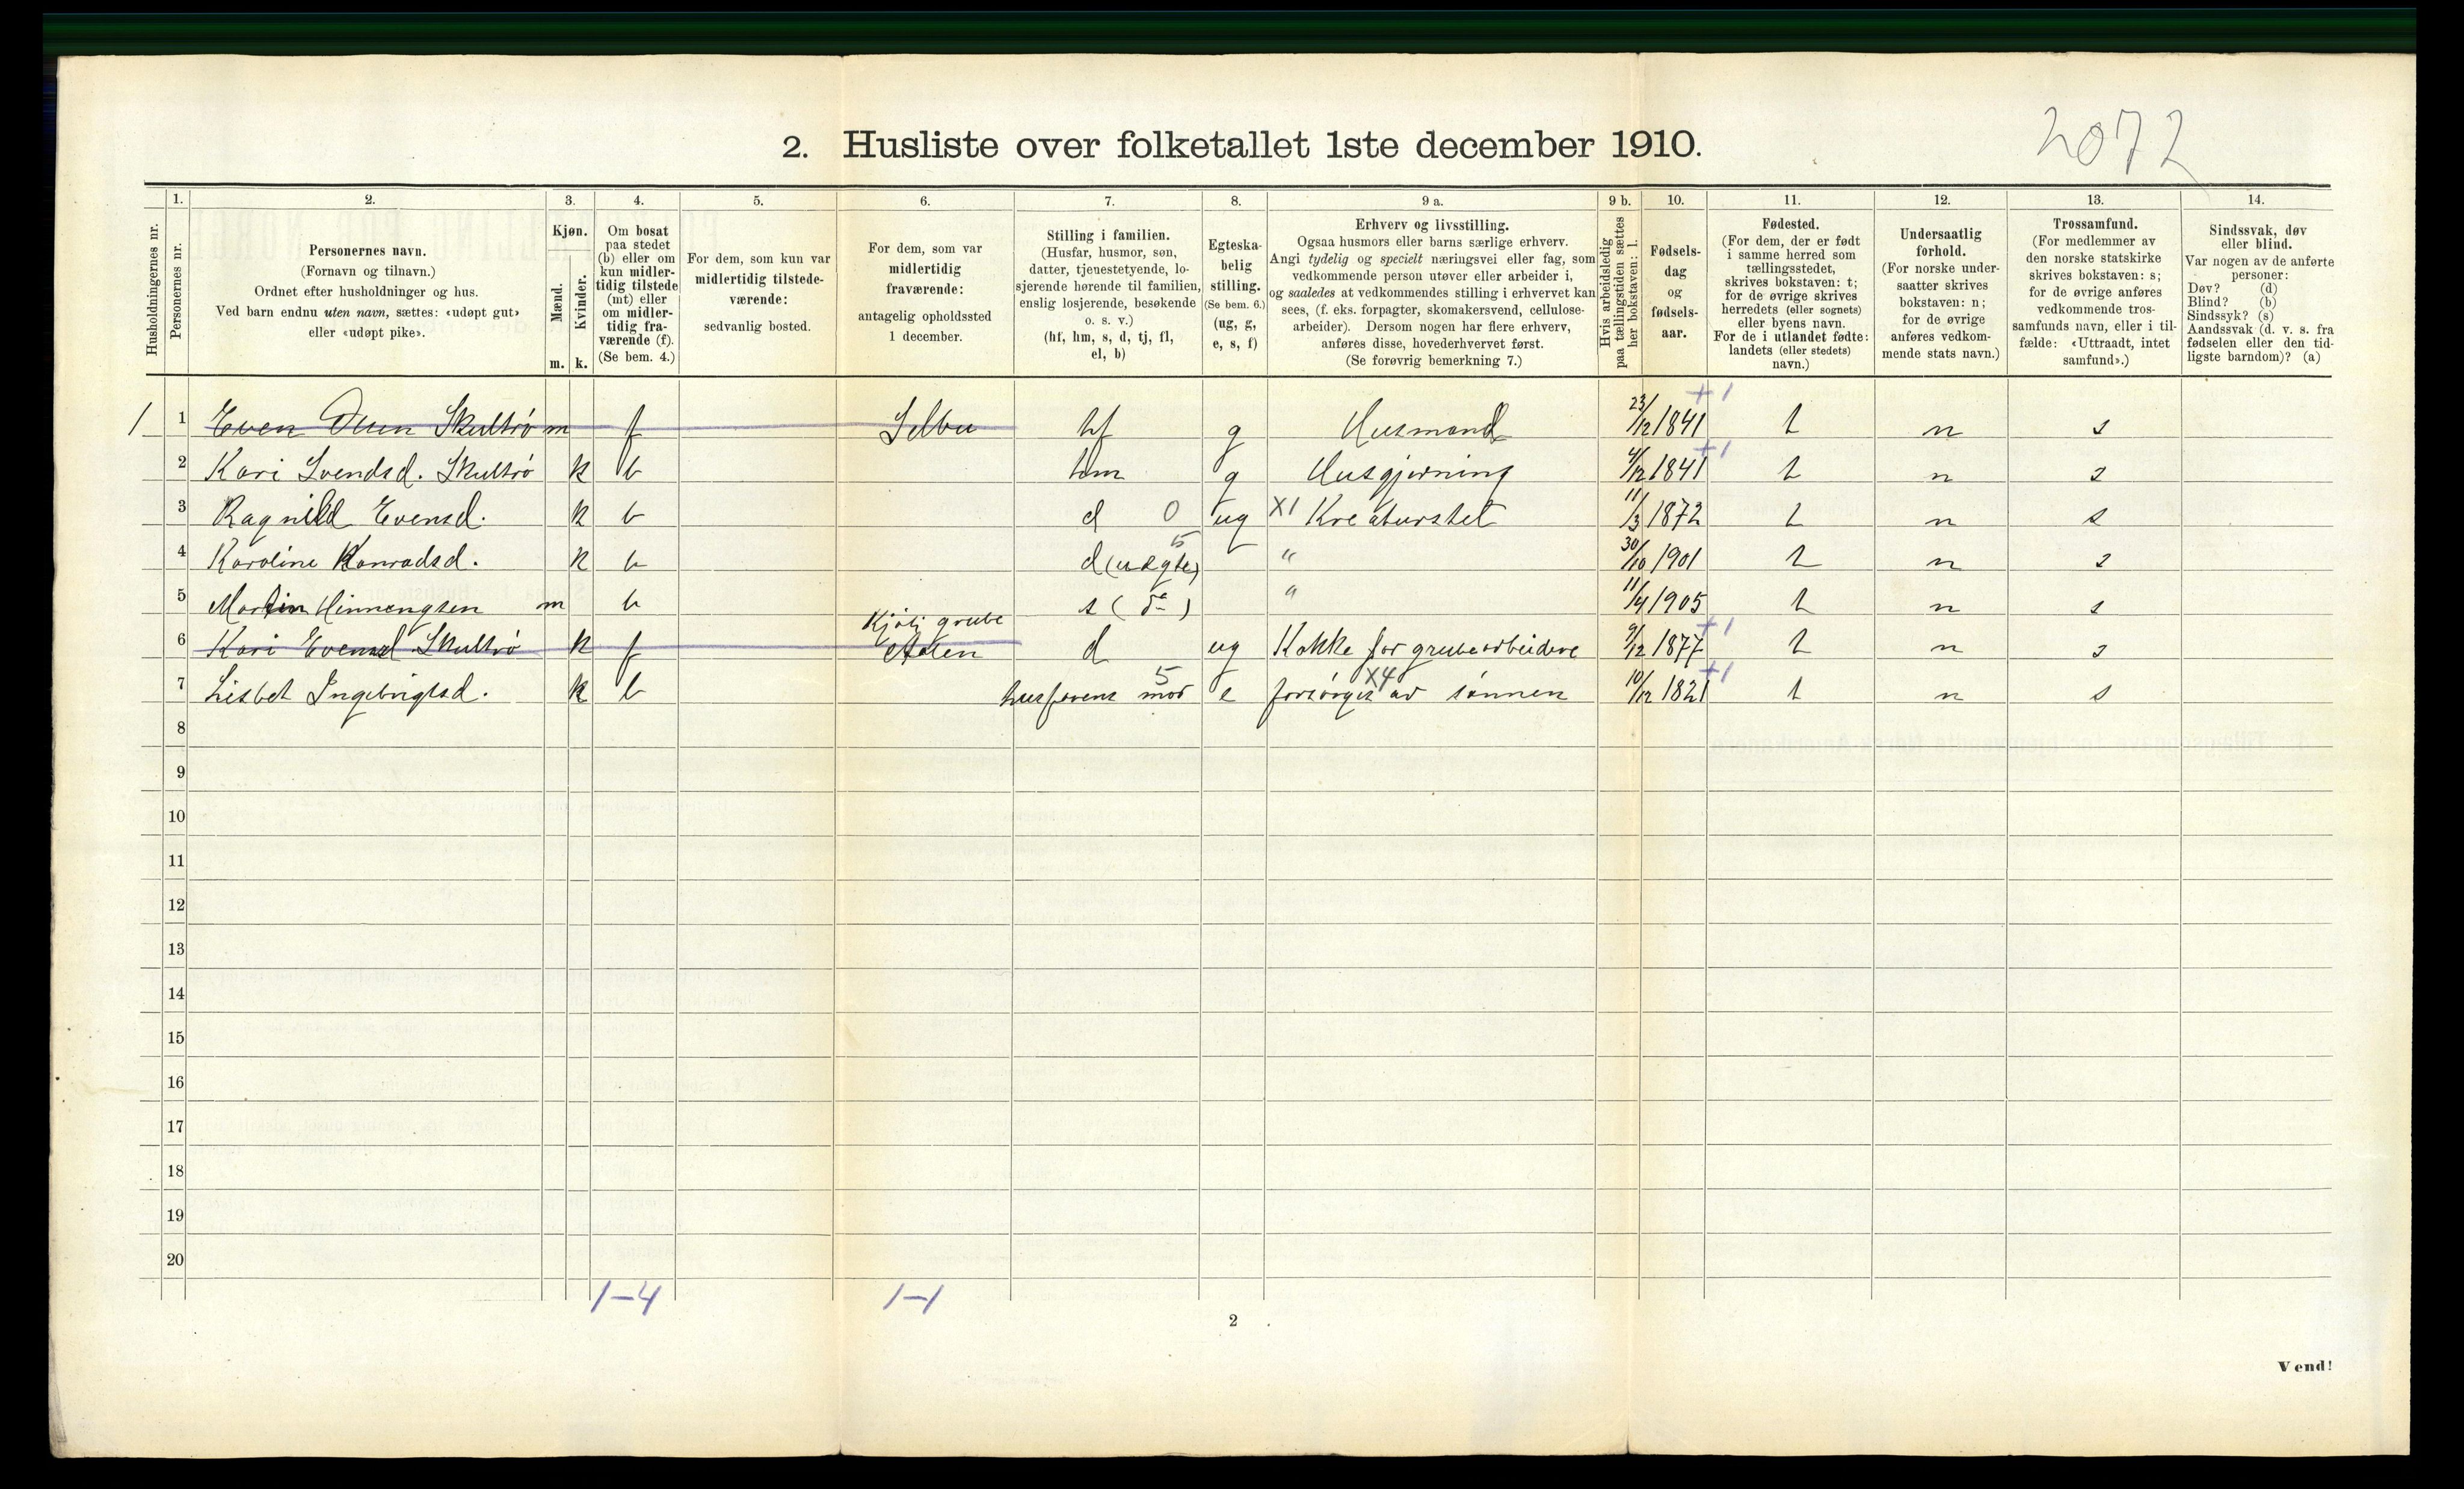 2072
2. Husliste over folketallet 1ste december 1910.
1. 2. 3. 4. 5. 6. 7. 8. 9 a. 9 b. 10. 11. 12. 13. 14.
Husholdningernes nr.
Personernes nr.
Personernes navn.
(Fornavn og tilnavn.)
Ordnet efter husholdninger og hus.
Ved barn endnu uten navn, sættes: «udøpt gut»
eller «udøpt pike».
Kjøn.
Mænd.
Kvinder.
m. k.
Om bosat
paa stedet
(b) eller om
kun midler-
tidig tilstede
(mt) eller
om midler-
tidig fra-
værende (f).
(Se bem. 4.)
For dem, som kun var
midlertidig tilstede-
værende:
sedvanlig bosted.
For dem, som var
midlertidig
fraværende:
antagelig opholdssted
1 december.
Stilling i familien.
(Husfar, husmor, søn,
datter, tjenestetyende, lo-
sjerende hørende til familien,
enslig losjerende, besøkende
o. s. v.)
(hf, hm, s, d, tj, fl,
el, b)
Egteska-
belig
stilling.
(Se bem. 6.)
(ug, g,
e, s, f)
Erhverv og livsstilling.
Ogsaa husmors eller barns særlige erhverv.
Angi tydelig og specielt næringsvei eller fag, som
vedkommende person utøver eller arbeider i,
og saaledes at vedkommendes stilling i erhvervet kan
sees, (f. eks. forpagter, skomakersvend, cellulose-
arbeider). Dersom nogen har flere erhverv,
anføres disse, hovederhvervet først.
(Se forøvrig bemerkning 7.)
Hvis arbeidsledig
paa tællingstiden sættes
her bokstaven: l.
Fødsels-
dag
og
fødsels-
aar.
Fødested.
(For dem, der er født
i samme herred som
tællingsstedet,
skrives bokstaven: t;
for de øvrige skrives
herredets (eller sognets)
eller byens navn.
For de i utlandet fødte:
landets (eller stedets)
navn.)
Undersaatlig
forhold.
(For norske under-
saatter skrives
bokstaven: n;
for de øvrige
anføres vedkom-
mende stats navn.)
Trossamfund.
(For medlemmer av
den norske statskirke
skrives bokstaven: s;
for de øvrige anføres
vedkommende tros-
samfunds navn, eller i til-
fælde: «Uttraadt, intet
samfund».)
Sindssvak, døv
eller blind.
Var nogen av de anførte
personer:
Døv? (d)
Blind? (b)
Sindssyk? (s)
Aandssvak (d. v. s. fra
fødselen eller den tid-
ligste barndom)? (a)
1 1 Even Olsen Skultrø m f Selbu hf g Husmand 23/12 1841 +1 t n s
2 Kari Svendsd. Skultrø k b hm g Husgjerning 4/12 1841 +1 t n s
3 Ragnild Evensd. k b d 0 ug X1 Kreaturstel 11/3 1872 t n s
4 Karoline Konradsd. k b d (uægte) 5 " 30/10 1901 t n s
5 Martin Hinnengsen m b s (do) " 11/4 1905 t n s
6 Kari Evensd Skultrø k f Kjøli grube Aalen d ug Kokke for grubearbeidere 9/12 1877 +1 t n s
7 Lisbet Ingebrigtsd. k b husfarens mor 5 e forsørges av sønnen X4 10/12 1821 +1 t n s
8
9
10
11
12
13
14
15
16
17
18
19
20
1–4 1–1
2
Vend!